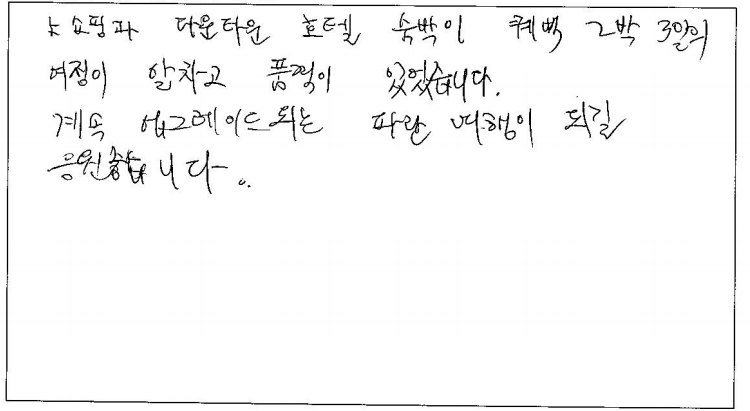 노쇼핑과 다운타운 호텔 숙박이 퀘벡 2박 3일의
여정이 알차고 품격이 있었습니다.
계속 업그레이드되는 파란 여행이 되길
응원합니다.